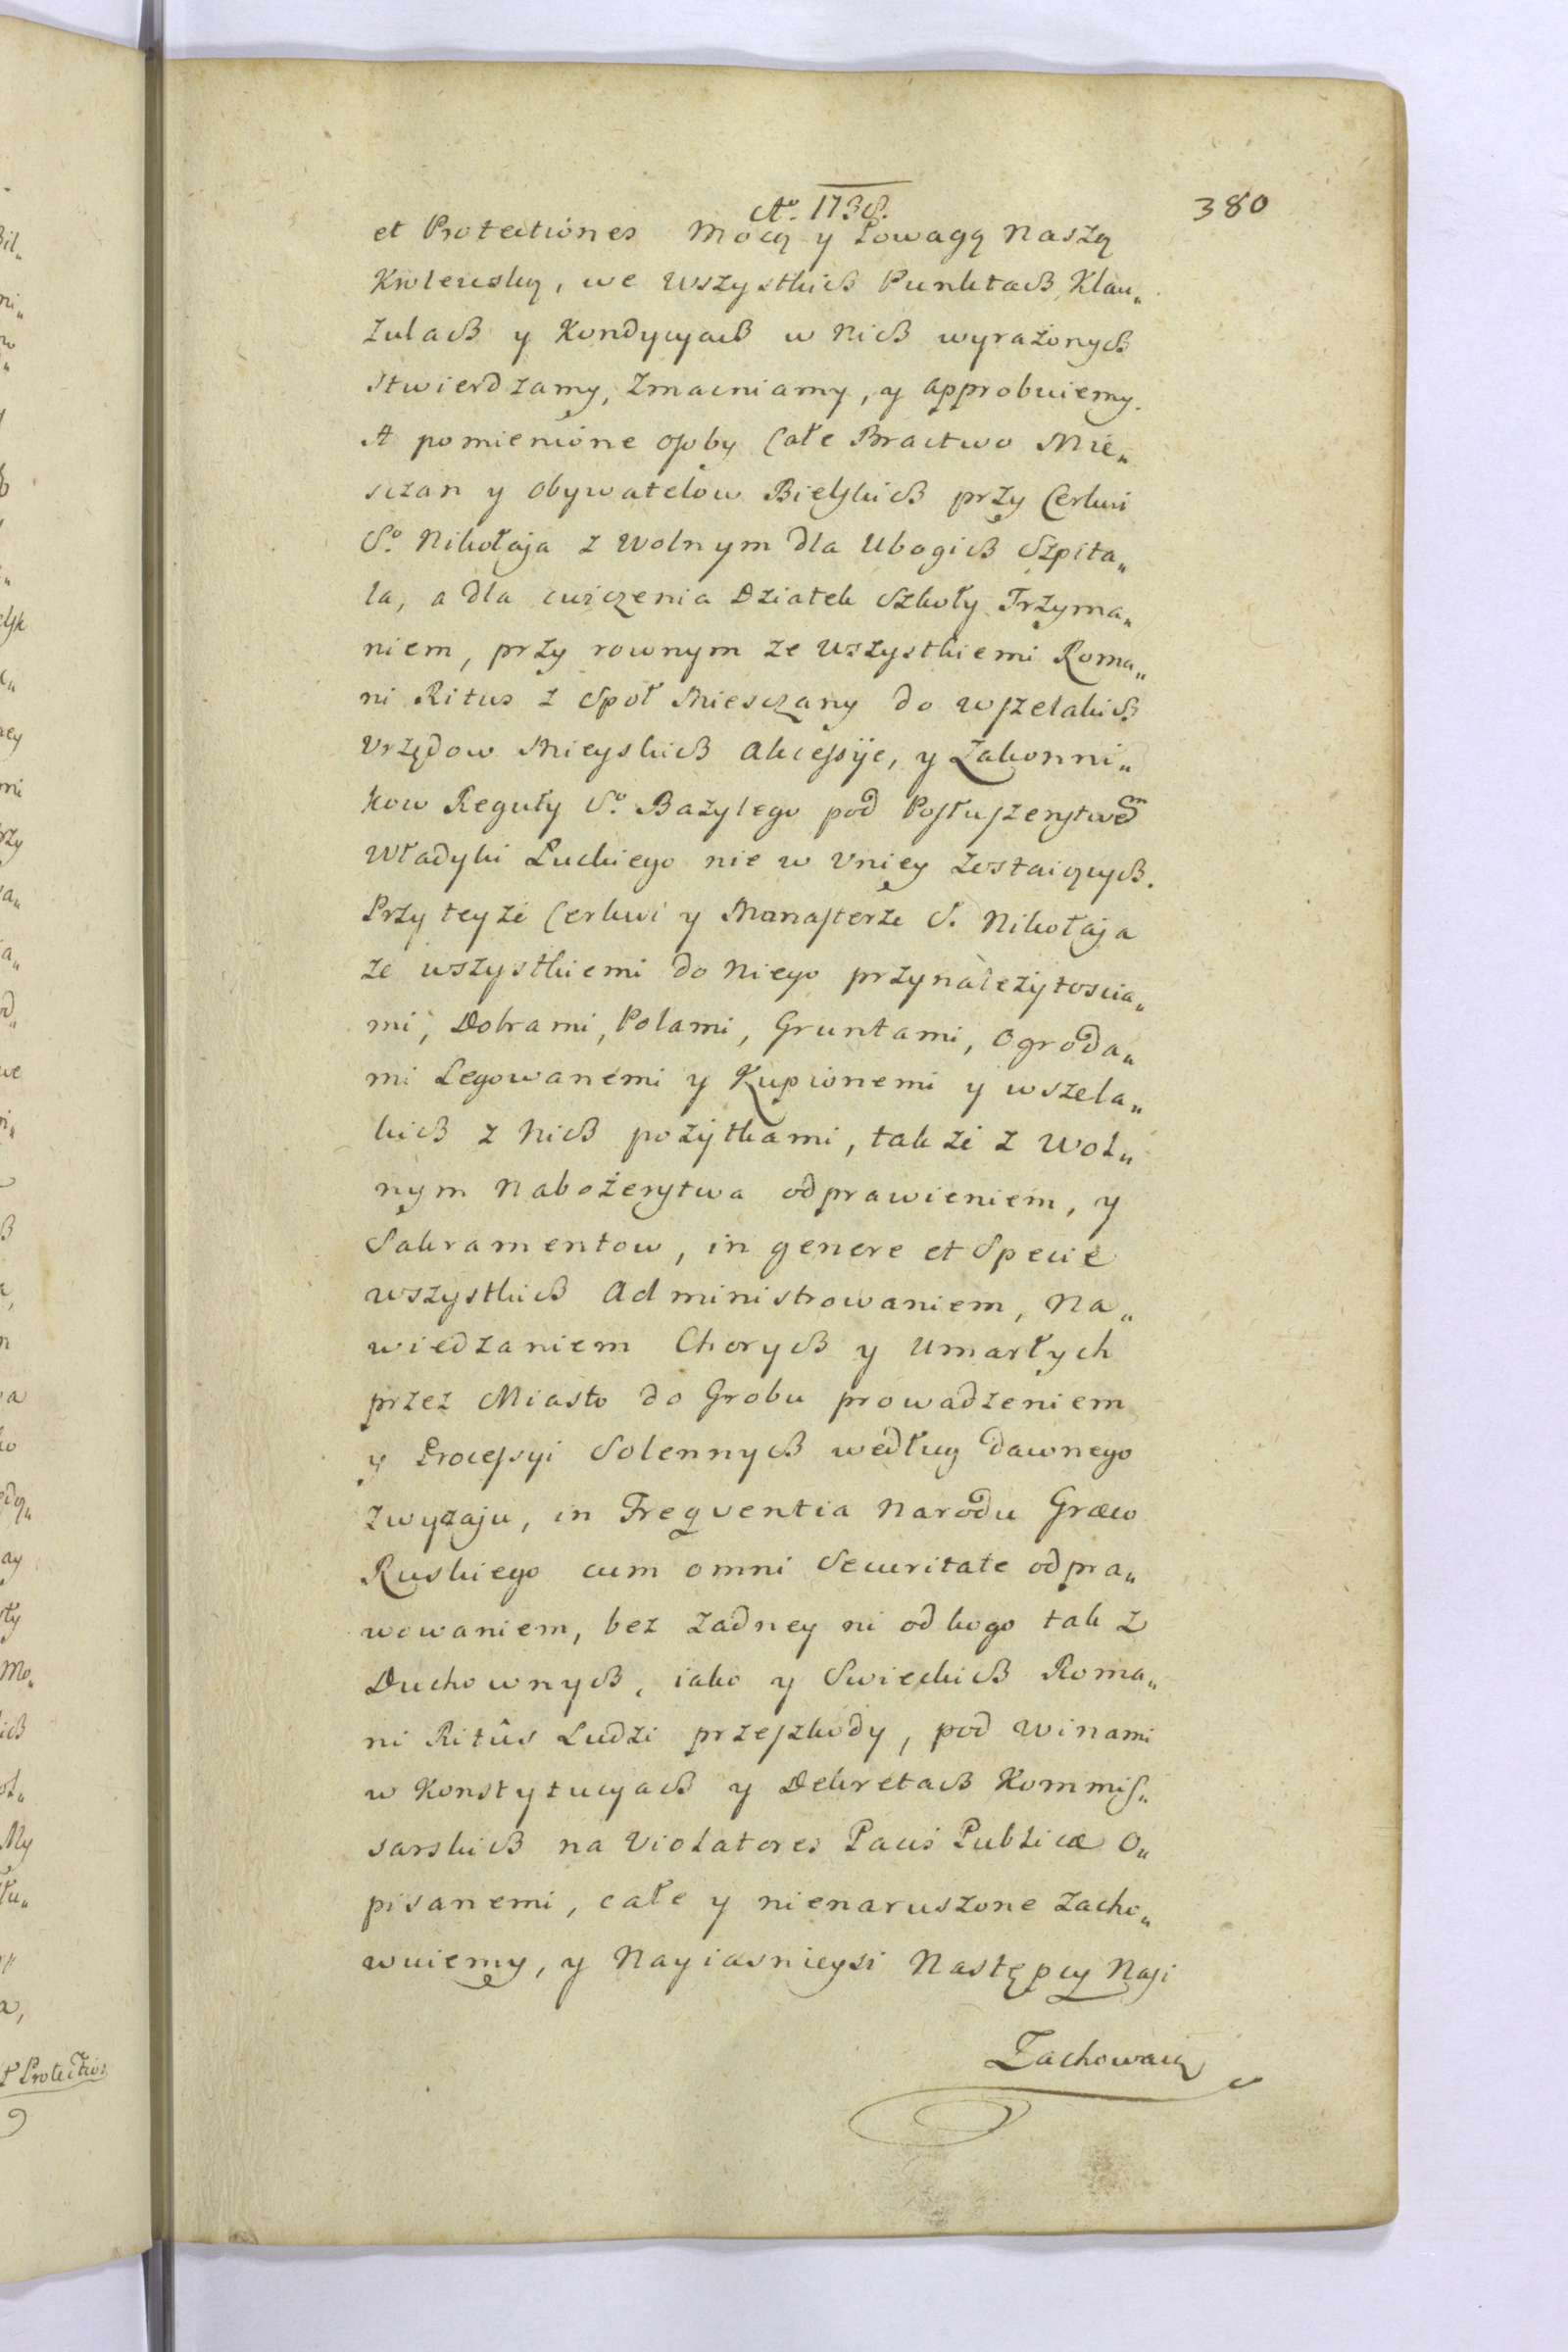 Aº. 1738.
380
et Protectiones Mocą y Powagą Naszą
Krolewską, we wszystkich Punktach, Klau„
zulach y Kondycyach w Nich wyrażonych
stwierdzamy, zmacniamy, y approbuiemy.
A pomienione osoby Całe Bractwo Mie„
sczan y Obywatelow Bielskich przy Cerkwi
Sº. Nikołaja z wolnym dla Ubogich Szpita„
la, a dla cwiczenia Dziatek Szkoły Trzyma„
niem, przy rownym ze wszystkiemi Roma„
ni Ritus z Społ Miesczany do wszelakich
Urzędow Mieyskich Akcessije, y Zakonni„
kow Reguły Sº. Bazylego pod Posłuszenstwem
Władyki Łuckiego nie w Uniey zostaiących.
Przy teyże Cerkwi y Manasterze S. Nikołaja
ze wszystkiemi do Niego przynależytoscia„
mi, Dobrami, Polami, Gruntami, Ogroda„
mi Legowanemi y Kupionemi y wszela„
kich z Nich pożytkami, takze z Wol„
nym Nabożenstwa odprawieniem, y
Sakramentow, in genere et Specie
wszystkich Administrowaniem, Na„
wiedzaniem Chorych y Umarłych
przez Miasto do Grobu prowadzeniem
y Processyi Solennych według dawnego
zwyczaju, in Frequentia Narodu Græco
Ruskiego cum omni Securitate odpra„
wowaniem, bez żadney ni od kogo tak z
Duchownych, iako y Swieckich Roma„
ni Ritûs Ludzi przeszkody, pod winami
w Konstytucyach y Dekretach Kommis„
sarskich na Violatores Pacis Publicæ O„
pisanemi, całe y nienaruszone zacho„
wuiemy, y Nayiasnieysi Następcy Nasi
Zachowaią
et Protection